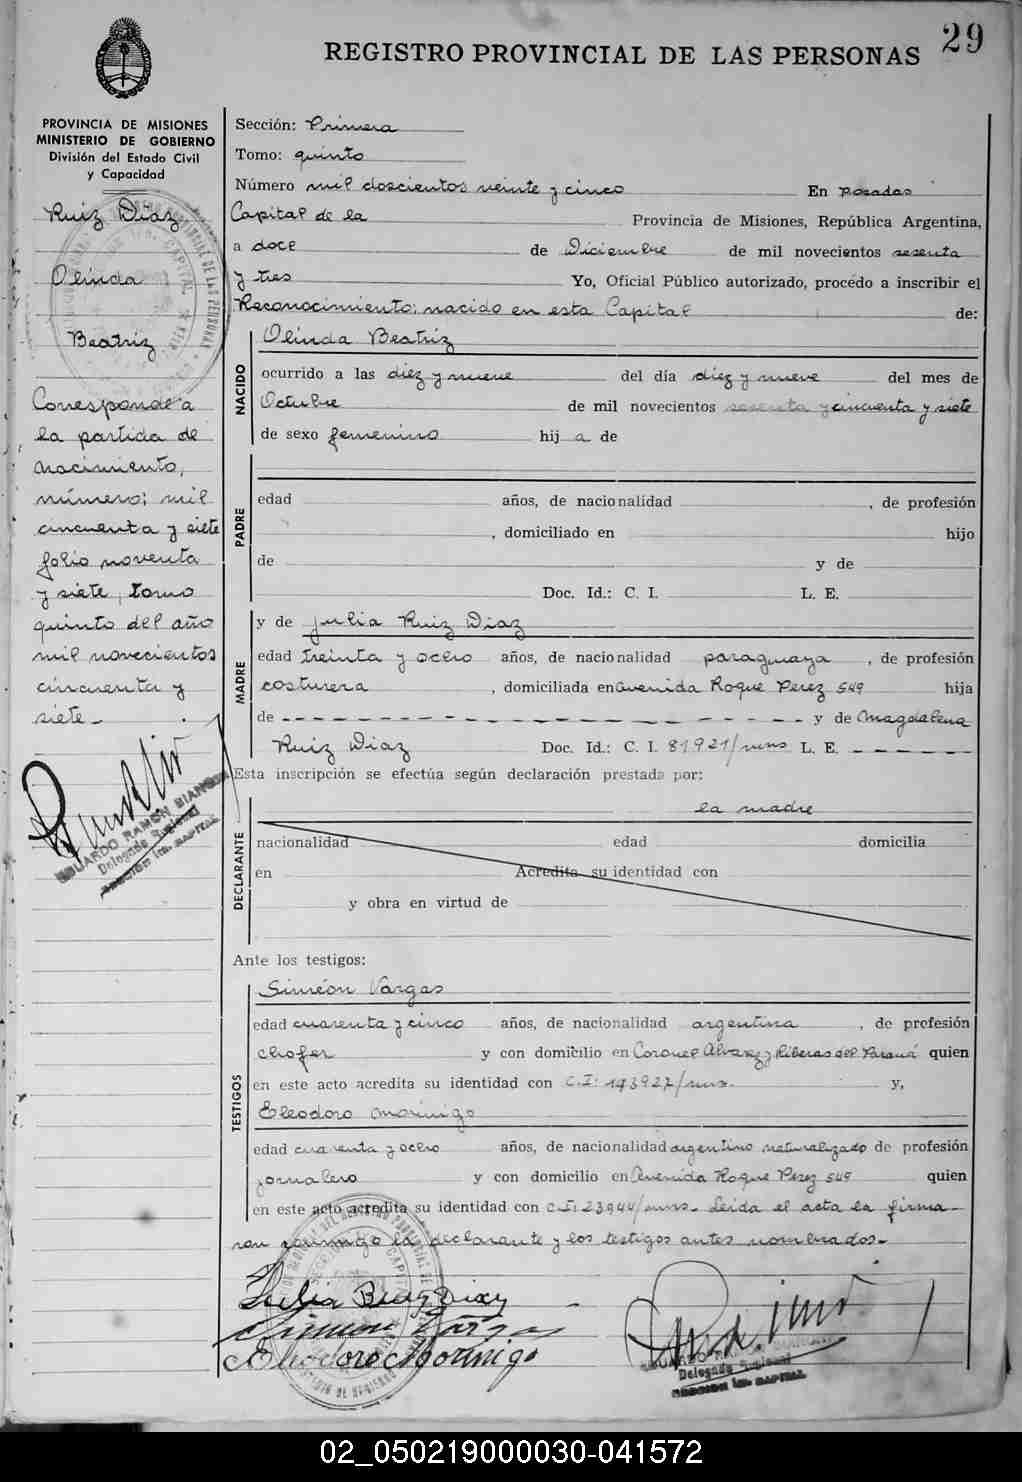 29
REGISTRO PROVINCIAL DE LAS PERSONAS
PROVINCIA DE MISIONES
MINISTERIO DE GOBIERNO
División del Estado Civil
y Capacidad
Ruiz Diaz
Olinda
Beatriz
Corresponde a
la partida de
nacimiento,
número; mil
cincuenta y siete
folio noventa
y siete, tomo
quinto del año
mil novecientos
cincuenta y
siete.-
EDUARDO RAMON BIANCHI
Delegado Regional
SECCION 1ra. CAPITAL
Sección: Primera
Tomo: quinto
Número mil doscientos veinte y cinco En Posadas
Capital de la Provincia de Misiones, República Argentina,
a doce de Diciembre de mil novecientos sesenta
y tres Yo, Oficial Público autorizado, procedo a inscribir el
Reconocimiento; nacido en esta Capital de:
NACIDO
Olinda Beatriz
ocurrido a las diez y nueve del día diez y nueve del mes de
Octubre de mil novecientos y cincuenta y siete
de sexo femenino hij a de
PADRE
edad años, de nacionalidad , de profesión
, domiciliado en hijo
de y de
Doc. Id.: C. I. L. E.
MADRE
y de Julia Ruiz Diaz
edad treinta y ocho años, de nacionalidad paraguaya , de profesión
costurera , domiciliada en Avenida Roque Perez 549 hija
de - - - - - - - - - - - - - - - - y de Magdalena
Ruiz Diaz Doc. Id.: C. I. 81921/mns L. E. - - - - - -
Esta inscripción se efectúa según declaración prestada por:
la madre
DECLARANTE
nacionalidad edad domicilia
en Acredita su identidad con
y obra en virtud de
Ante los testigos:
TESTIGOS
Simeón Vargas
edad cuarenta y cinco años, de nacionalidad argentina , de profesión
chofer y con domicilio en Coronel Alvarez y Riberas del Paraná quien
en este acto acredita su identidad con C.I: 143927/mns. y,
Eleodoro Morinigo
edad cuarenta y ocho años, de nacionalidad argentino naturalizado de profesión
jornalero y con domicilio en Avenida Roque Perez 549 quien
en este acto acredita su identidad con C.I: 23944/mns.- Leida el acta la firma-
ron conmigo la declarante y los testigos antes nombrados.-
Julia Ruiz Diaz
Simeon Vargas
Eleodoro Morinigo
Delegado Regional
SECCION 1ra. CAPITAL
02_050219000030-041572